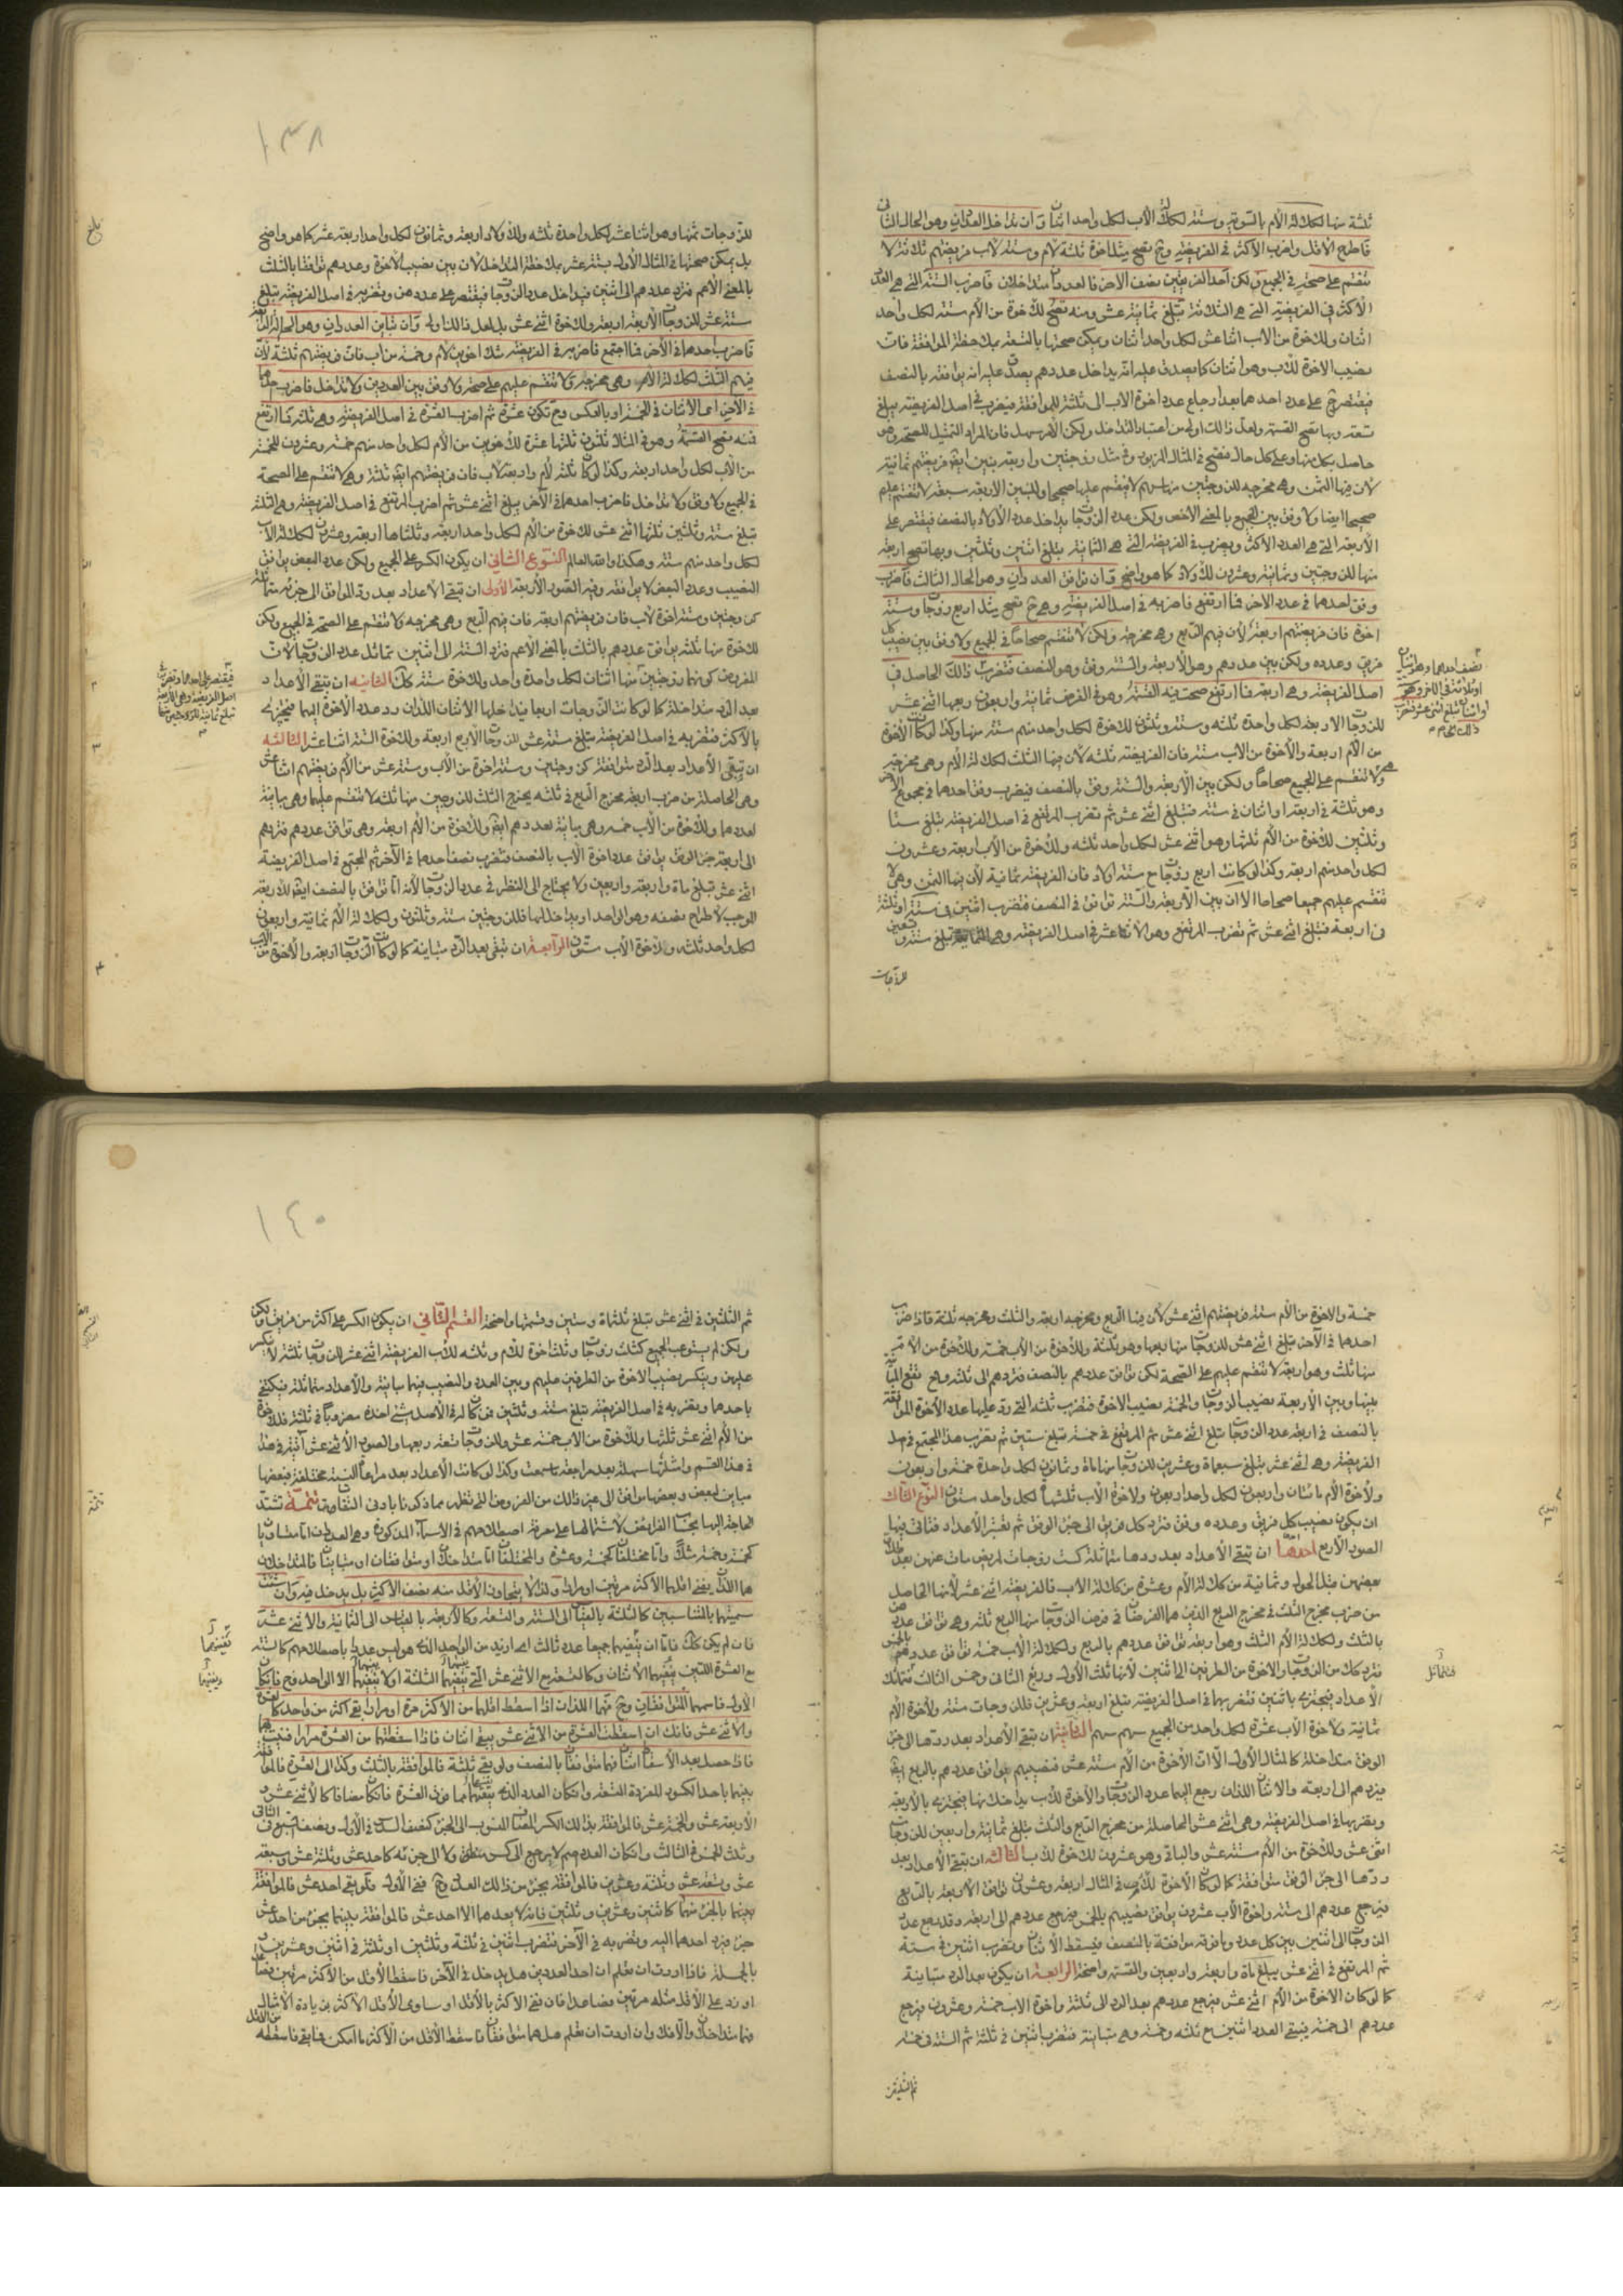 ثلثة منها لكلالة الأم بالسوية وستة لكلالة الأب لكل واحد اثنان وان تداخل العددان وهو الحال الثاني
فاطرح الاقل واضرب الأكثر في الفريضة وح تصح مثل اخوة ثلثة لأم وستة لأب فريضتهم ثلثة لا
تنقسم على صحة في الجميع ولكن احد الفريقين نصف الآخر فالعددان متداخلان فاضرب الستة التي هي العدد
الأكثر في الفريضة التي هي الثلثة تبلغ ثمانية عشر ومنه تصح للاخوة من الأم ستة لكل واحد
اثنان وللاخوة من الأب اثنا عشر لكل واحد اثنان ويمكن صحتها بالتسعة بملاحظة الموافقة فان
نصيب الاخوة للاب وهو اثنان كما يصدق عليه انه يداخل عددهم يصدق عليه انه يوافقه بالنصف
فيقتصر ح على عدد احدهما بعد ارجاع عدد اخوة الأب الى ثلثة للموافقة فيضرب في اصل الفريضة يبلغ
تسعة وبها تصح القسمة ولعل ذلك اولى من اعتبار التداخل ولكن الأمر سهل فان المراد التمثيل للصحة وهو
حاصل بكل منها وعلى كل حال فتصح في المثال المزبور وفي مثل زوجتين واربعة بنين ايضا فريضتهم ثمانية
لأن فيها الثمن وهو مخرجه للزوجتين منها سهم لا ينقسم عليها صحيحا وللبنين الأربعة سبعة لا تنقسم عليهم
صحيحا ايضا ولا وفق بين الجميع بالمعنى الأخص ولكن عدد الزوجات يداخل عدد الأولاد بالنصف فيقتصر على
الأربعة التي هي العدد الأكثر ويضرب في الفريضة التي هي الثمانية يبلغ اثنين وثلثين وبها تصح اربعة
منها للزوجتين وثمانية وعشرون للأولاد كما هو واضح وان توافق العددان وهو الحال الثالث فاضرب
وفق احدهما في عدد الآخر فما ارتفع فاضربه في اصل الفريضة وهي ح تصح مثل اربع زوجات وستة
اخوة فان فريضتهم اربعة لأن فيهم الربع وهو مخرجه ولكن لا تنقسم صحاحا في الجميع ولا وفق بين نصيب كل
فريق وعدده ولكن بين عددهم وهو الأربعة والستة وفق وهو النصف فتضرب ذلك الحاصل في
اصل الفريضة وهي اربعة فما ارتفع صحت فيه القسمة وهو في الفرض ثمانية واربعون ربعها اثني عشر
للزوجات الاربعة لكل واحدة ثلثة وستة وثلثون للاخوة لكل واحد منهم ستة منها وكذا لو كان الأخوة
من الأم اربعة والأخوة من الأب ستة فان الفريضة ثلثة لأن فيها الثلث لكلالة الأم وهي مخرجه
ولا تنقسم على الجميع صحاحا ولكن بين الأربعة والستة وفق بالنصف فيضرب وفق احدهما في مجموع الآخر
وهو ثلثة في اربعة او اثنان في ستة فتبلغ اثني عشر ثم تضرب المرتفع في اصل الفريضة يبلغ ستا
وثلثين للاخوة من الأم ثلثها وهو اثني عشر لكل واحد ثلثة وللاخوة من الأب اربعة وعشرون
لكل واحد منهم اربعة وكذا لو كانت اربع زوجات مع ستة اولاد فان الفريضة ثمانية لأن فيها الثمن وهي لا
تنقسم عليهم جميعا صحاحا الا ان بين الأربعة والستة توافق في النصف فتضرب اثنين في ستة او ثلثة
في اربعة فتبلغ اثني عشر ثم تضرب المرتفع وهو الاثنا عشر في اصل الفريضة وهي الثمانية تبلغ ستة وتسعين
للزوجات
١٣٨
للزوجات ثمنها وهو اثنا عشر لكل واحدة ثلثه وللاولاد اربعة وثمانون لكل واحد اربعة عشر كما هو واضح
بل يمكن صحتها في المثال الأول بستة عشر بملاحظة التداخل لأن بين نصيب الأخوة وعددهم توافقا بالثلث
بالمعنى الأعم فترد عددهم الى اثنين فيداخل عدد الزوجات فيقتصر على عددهن ويضربه في اصل الفريضة يبلغ
ستة عشر للزوجات الأربعة اربعة وللاخوة اثني عشر بل لعل ذلك اولى وان تباين العددان وهو الحال الرابع
فاضرب احدهما في الآخر فما اجتمع فاضربه في الفريضة مثل اخوين لأم وخمسة من اب فان فريضتهم ثلثة لأن
فيهم الثلث لكلالة الأم وهي مخرجه ولا تنقسم عليهم على صحة ولا وفق بين العددين ولا تداخل فاضرب احدهما
في الآخر اعني الاثنان في الخمسة او بالعكس وح تكون عشرة ثم اضرب العشرة في اصل الفريضة وهي ثلثة فما ارتفع
فمنه تصح القسمة وهو في المثال ثلثون ثلثها عشرة للاخوين من الأم لكل واحد منهم خمسة وعشرون للخمسة
من الأب لكل واحد اربعة وكذا لو كان ثلثة لأم واربعة لأب فان فريضتهم ايضا ثلثة وهي لا تنقسم على الصحة
في الجميع ولا وفق ولا تداخل فاضرب احدهما في الآخر يبلغ اثني عشر ثم اضرب المرتفع في اصل الفريضة وهي الثلثة
تبلغ ستة وثلثين ثلثها اثني عشر للاخوة من الأم لكل واحد اربعة وثلثاها اربعة وعشرون لكلالة الأب
لكل واحد منهم ستة وهكذا والله العالم النوع الثاني ان يكون الكسر على الجميع ولكن عدد البعض يوافق
النصيب وعدد البعض لا يوافقه وفيه الصور الأربعة الأولى ان تبقى الأعداد بعد رد الموافق الى جزئه متماثلة
كزوجتين وستة اخوة لأب فان فريضتهم اربعة فان فيهم الربع وهي مخرجه ولا تنقسم على الصحة في الجميع ولكن
للاخوة منها ثلثة يوافق عددهم بالثلث بالمعنى الأعم فترد الستة الى اثنين تماثل عدد الزوجات لأن
المفروض كونهما زوجتين منها اثنان لكل واحدة واحد وللاخوة ستة كل الثانية ان تبقى الأعداد
بعد الرد متداخلة كما لو كانت الزوجات اربعا فيداخلها الأثنان اللذان رد عدد الأخوة اليهما فيجتزى
بالأكثر فتضربه في اصل الفريضة يبلغ ستة عشر للزوجات الأربع اربعة وللاخوة الستة اثنا عشر الثالثة
ان تبقى الأعداد بعد الرد متوافقة كزوجتين وستة اخوة من الأب وستة عشر من الأم فريضتهم اثنا عشر
وهي الحاصلة من ضرب اربعة مخرج الربع في ثلثه مخرج الثلث للزوجتين منها ثلثة لا تنقسم عليهما وهي مباينة
لعددهما وللاخوة من الأب خمسه وهي مباينة لعددهم ايضا وللاخوة من الأم اربعة وهي توافق عددهم فتردهم
الى اربعة جزء الوفق يوافق عدد اخوة الأب بالنصف فتضرب نصف احدهما في الآخر ثم المجتمع في اصل الفريضة
اثني عشر تبلغ مأة واربعة واربعين ولا يحتاج الى النظر في عدد الزوجات لأنه اما توافق بالنصف ايضا للاربعة
الموجب لاطراح نصفه وهو الواحد او يداخلها فللزوجتين ستة وثلثون ولكلالة الأم ثمانية واربعون
لكل واحد ثلثه ولاخوة الأب ستون الرابعة ان تبقى بعد الرد متباينة كما لو كان الزوجات اربعة والأخوة من الأب
خمسة والاخوة من الأم ستة فريضتهم اثني عشر لأن فيها الربع ومخرجه اربعة والثلث ومخرجه ثلثة فاذا ضرب
احدهما في الآخر يبلغ اثني عشر للزوجات منها ربعها وهو ثلثة وللاخوة من الأب خمسة وللاخوة من الأم
منها ثلث وهو اربعة لا تنقسم عليهم على الصحة لكن توافق عددهم بالنصف فتردهم الى ثلثه وح تقع المباينة
بينها وبين الأربعة نصيب الزوجات والخمسة نصيب الاخوة فتضرب ثلثه التي رد عليها عدد الأخوة الموافقة
بالنصف في اربعة عدد الزوجات تبلغ اثني عشر ثم المرتفع في خمسة تبلغ ستين ثم تضرب هذا المجتمع في اصل
الفريضة وهي اثني عشر يبلغ سبعمأة وعشرين للزوجات منها مأة وثمانون لكل واحدة خمسة واربعون
ولأخوة الأم مائتان واربعون لكل واحد اربعون ولاخوة الأب ثلثمأة لكل واحد ستون النوع الثالث
ان يكون نصيب كل فريق وعدده وفق فترد كل فريق الى جزء الوفق ثم تعتبر الأعداد فتأتي فيها
الصور الأربع احدها ان تبقى الأعداد بعد ردها متماثلة كست زوجات لمريض مات عنهن بعد طلاق
بعضهن قبل الحول وثمانية من كلالة الأم وعشرة من كلالة الاب فالفريضة اثني عشر لأنها الحاصل
من ضرب مخرج الثلث في مخرج الربع الذين هما الفرضان في فرض الزوجات منها الربع ثلثه وهي توافق عددهن
بالثلث ولكلالة الأم الثلث وهو اربعة توافق عددهم بالربع ولكلالة الأب خمسة توافق عددهم بالخمس
فترد كل من الزوجات والاخوة من الطرفين الى اثنين لأنها ثلث الأول وربع الثاني وخمس الثالث فتماثلت
الأعداد فيجتزى باثنين فتضربها في اصل الفريضة يبلغ اربعة وعشرين فللزوجات ستة ولأخوة الأم
ثمانية ولأخوة الأب عشرة لكل واحد من الجميع سهم سهم الثانية ان تبقى الأعداد بعد ردها الى جزء
الوفق متداخلة كالمثال الأول الا ان الأخوة من الأم ستة عشر فنصيبهم يوافق عددهم بالربع ايضا
فتردهم الى اربعة والاثنان اللذان رجع اليهما عدد الزوجات والأخوة للأب يداخلانها فيجتزى بالأربعة
وتضربها في اصل الفريضة وهي اثني عشر الحاصلة من مخرج الربع والثلث يبلغ ثمانية واربعين للزوجات
اثني عشر وللاخوة من الأم ستة عشر والباقي وهو عشرون للاخوة للاب الثالثة ان تبقى الأعداد بعد
ردها الى جزء الوفق متوافقة كما لو كان الأخوة للأم في المثال اربعة وعشرون توافق الأربعة بالربع
فيرجع عددهم الى ستة واخوة الأب عشرون يوافق نصيبهم بالخمس فيرجع عددهم الى اربعة وقد رجع عدد
الزوجات الى اثنين بين كل عدد وما فوقه موافقة بالنصف فيسقط الأثنان وتضرب اثنين في ستة
ثم المرتفع في اثني عشر يبلغ مأة واربعة واربعين والقسمة واضحة الرابعة ان يكون بعد الرد متباينة
كما لو كان الاخوة من الأم اثني عشر فيرجع عددهم بعد الرد الى ثلثة واخوة الاب خمسة وعشرون فيرجع
عددهم الى خمسة فيبقى العدد اثنين مع ثلثه وخمسة وهي متباينة فتضرب اثنين في ثلثة ثم الستة في خمسة
ثم الثلثين
١٤٠
ثم الثلثين في اثني عشر يبلغ ثلثمأة وستين وقسمتها واضحة القسم الثاني ان يكون الكسر على اكثر من فريق ولكن
ولكن لم يستوعب الجميع كثلث زوجات وثلث اخوة للأم وثلثه للأب الفريضة اثني عشر للزوجات ثلثة لا تنكسر
عليهن وينكسر نصيب الاخوة من الطرفين عليهم وبين العدد والنصيب فيهما مباينة والأعداد متماثلة فيكتفى
باحدهما وتضربه في اصل الفريضة يبلغ ستة وثلثين فمن كان له في الأصل شيئ اخذه مضروبا في ثلثة فللاخوة
من الأم اثني عشر ثلثها وللاخوة من الأب خمسة عشر وللزوجات تسعة ربعها والصور الأثني عشر آتية في هذا
في هذا القسم وامثلتها سهلة بعد مراجعة ما سمعت وكذا لو كانت الأعداد بعد مراعاة النسبة مختلفة فبعضها
مباين لبعض وبعضها موافق الى غير ذلك من الفروض التي تظهر مما ذكرنا بادنى التفات تتمة تشتد
الحاجة اليها بحساب الفرائض لاشتمالها على معرفة اصطلاحهم في الأسماء المذكورة وهي العددان اما متساويان
كخمسة وخمسة مثلا واما مختلفان كخمسة وعشرة والمختلفان اما متداخلان او متوافقان او متباينان فالمتداخلان
هما اللذان يفني اقلهما الأكثر مرتين او مرارا ولذا لا يتجاوز الأقل منه نصف الأكثر بل يدخل فيه وان شئت
سميتهما بالمتناسبين كالثلثة بالقياس الى الستة والتسعة وكالأربعة بالقياس الى الثمانية والاثني عشر
فان لم يكن كذلك فاما ان يفنيهما جميعا عدد ثالث اي ازيد من الواحد الذي هو ليس عددا باصطلاحهم كالستة
مع العشرة اللتين يفنيهما الأثنان وكالتسعة مع الاثني عشر التي يفنيهما الثلثة او لا يفنيهما الا الواحد وح فان كان
الأول فاسمهما المتوافقان وح فهما اللذان اذا اسقط اقلهما من الأكثر مرة او مرارا بقي اكثر من واحد كالعشرة
والاثني عشر فانك ان اسقطت العشرة من الاثني عشر يبقى اثنان فاذا اسقطتهما من العشرة مرارا فنيت بهما
فاذا حصل بعد الأسقاط اثنان فهما متوافقان بالنصف ولو بقي ثلثة فالموافقة بالثلث وكذا الى العشرة فالموافقة
بينهما باحد الكسور المفردة التسعة وان كان العدد الذي يفنيهما مما فوق العشرة فان كان مضافا كالأثني عشر و
الأربعة عشر والخمسة عشر فالموافقة بذلك الكسر المضاف المنسوب الى الجزء كنصف السدس في الأول ونصف السبع في الثاني
وثلث الخمس في الثالث وان كان العدد اصم لا يرجع الى كسر منطق ولا الى جزئه كاحد عشر وثلثة عشر وسبعة
عشر وتسعة عشر وثلثة وعشرين فالموافقة بجزء من ذلك العدد وح ففي الأول وقد بقي احد عشر فالموافقة
بينهما بالجزء منهما كاثنين وعشرين وثلثين فانه لا يعدهما الا احد عشر فالموافقة بينهما بجزء من احد عشر
جزء فترد احدهما اليه وتضربه في الآخر فتضرب اثنين في ثلثة وثلثين او ثلثة في اثنين وعشرين و
بالجملة فاذا اردت ان تعلم ان احد العددين هل يدخل في الآخر فاسقط الأقل من الأكثر مرتين فصاعدا
او زد على الأقل مثله مرتين فصاعدا فان فني الاكثر بالأقل او ساوى الأقل الأكثر بزيادة الأمثال
فهما متداخلان والا فلا وان اردت ان تعلم هل هما متوافقان فاسقط الأقل من الأكثر ما امكن فما بقي فاسقطه من الأقل